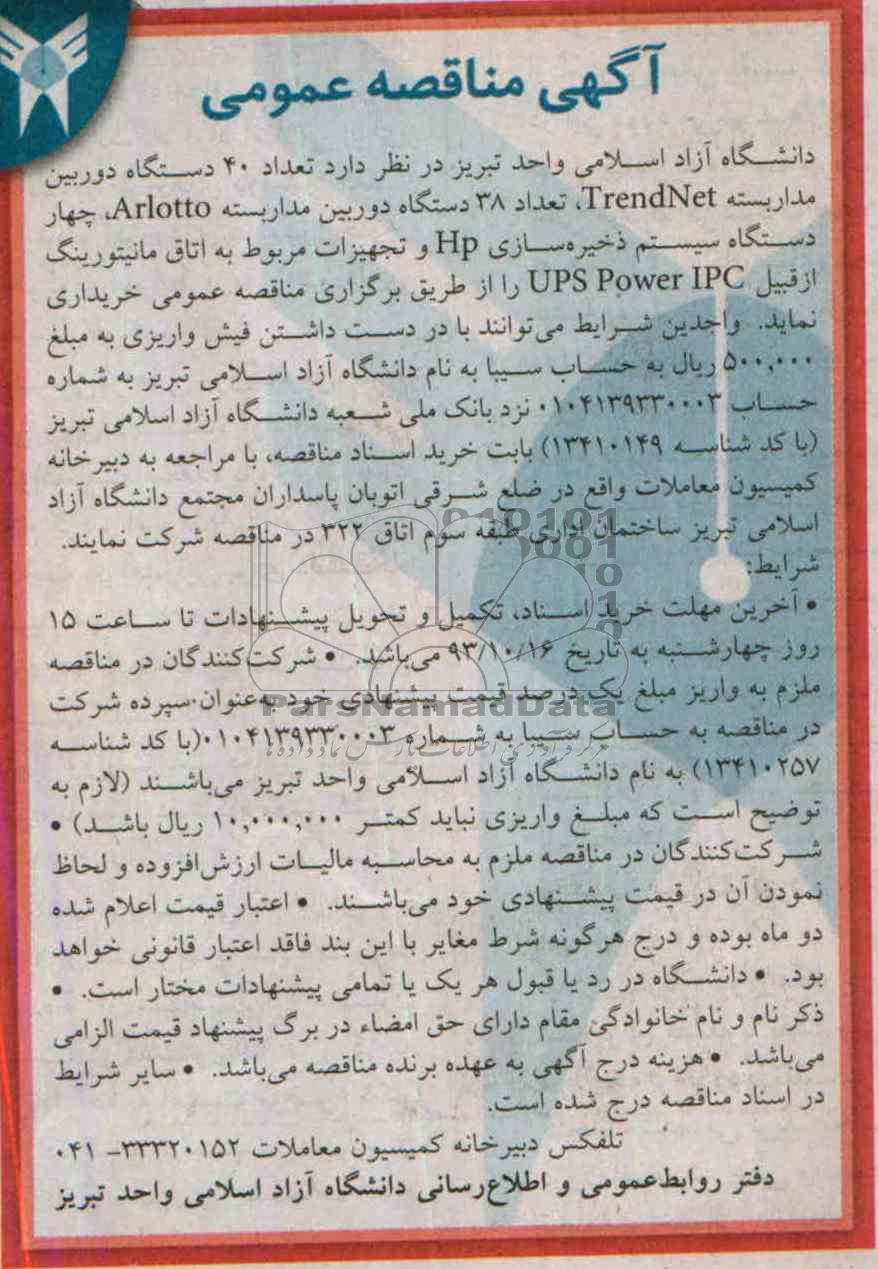 آگهی مناقصه عمومی
دانشگاه آزاد اسلامی واحد تبریز در نظر دارد تعداد ۴۰ دستگاه دوربین
مداربسته TrendNet، تعداد ۳۸ دستگاه دوربین مداربسته Arlotto، چهار
دستگاه سیستم ذخیره‌سازی Hp و تجهیزات مربوط به اتاق مانیتورینگ
ازقبیل UPS Power IPC را از طریق برگزاری مناقصه عمومی خریداری
نماید. واجدین شرایط می‌توانند با در دست داشتن فیش واریزی به مبلغ
۵۰۰,۰۰۰ ریال به حساب سیبا به نام دانشگاه آزاد اسلامی تبریز به شماره
حساب ۰۱۰۴۱۳۹۳۳۰۰۰۳ نزد بانک ملی شعبه دانشگاه آزاد اسلامی تبریز
(با کد شناسه ۱۳۴۱۰۱۴۹) بابت خرید اسناد مناقصه، با مراجعه به دبیرخانه
کمیسیون معاملات واقع در ضلع شرقی اتوبان پاسداران مجتمع دانشگاه آزاد
اسلامی تبریز ساختمان اداری طبقه سوم اتاق ۳۲۲ در مناقصه شرکت نمایند.
شرایط:
• آخرین مهلت خرید اسناد، تکمیل و تحویل پیشنهادات تا ساعت ۱۵
روز چهارشنبه به تاریخ ۹۳/۱۰/۱۶ می‌باشد. • شرکت‌کنندگان در مناقصه
ملزم به واریز مبلغ یک درصد قیمت پیشنهادی خود به‌عنوان سپرده شرکت
ParsNamadData
در مناقصه به حساب سیبا به شماره ۰۱۰۴۱۳۹۳۳۰۰۰۳ (با کد شناسه
۱۳۴۱۰۲۵۷) به نام دانشگاه آزاد اسلامی واحد تبریز می‌باشند (لازم به
توضیح است که مبلغ واریزی نباید کمتر ۱۰,۰۰۰,۰۰۰ ریال باشد) •
شرکت‌کنندگان در مناقصه ملزم به محاسبه مالیات ارزش‌افزوده و لحاظ
نمودن آن در قیمت پیشنهادی خود می‌باشند. • اعتبار قیمت اعلام شده
دو ماه بوده و درج هرگونه شرط مغایر با این بند فاقد اعتبار قانونی خواهد
بود. • دانشگاه در رد یا قبول هر یک یا تمامی پیشنهادات مختار است. •
ذکر نام و نام خانوادگی مقام دارای حق امضاء در برگ پیشنهاد قیمت الزامی
می‌باشد. • هزینه درج آگهی به عهده برنده مناقصه می‌باشد. • سایر شرایط
در اسناد مناقصه درج شده است.
تلفکس دبیرخانه کمیسیون معاملات ۳۳۳۲۰۱۵۲-۰۴۱
دفتر روابط‌عمومی و اطلاع‌رسانی دانشگاه آزاد اسلامی واحد تبریز